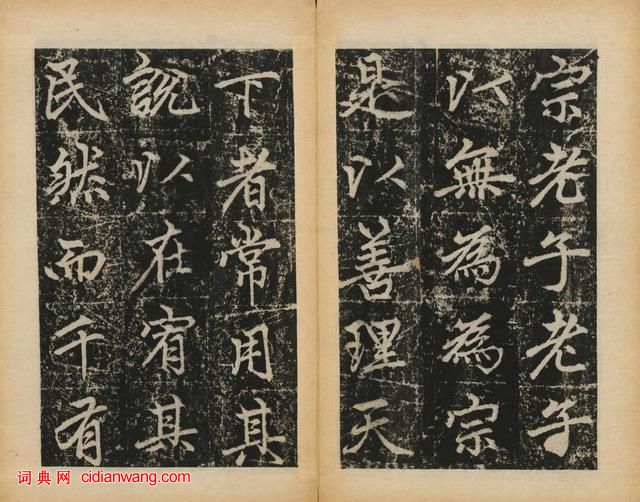 宗老子老子
以無為為宗
是以善理天
下者常用其
說以在宥其
民然而千有
词典网 cidianwang.com